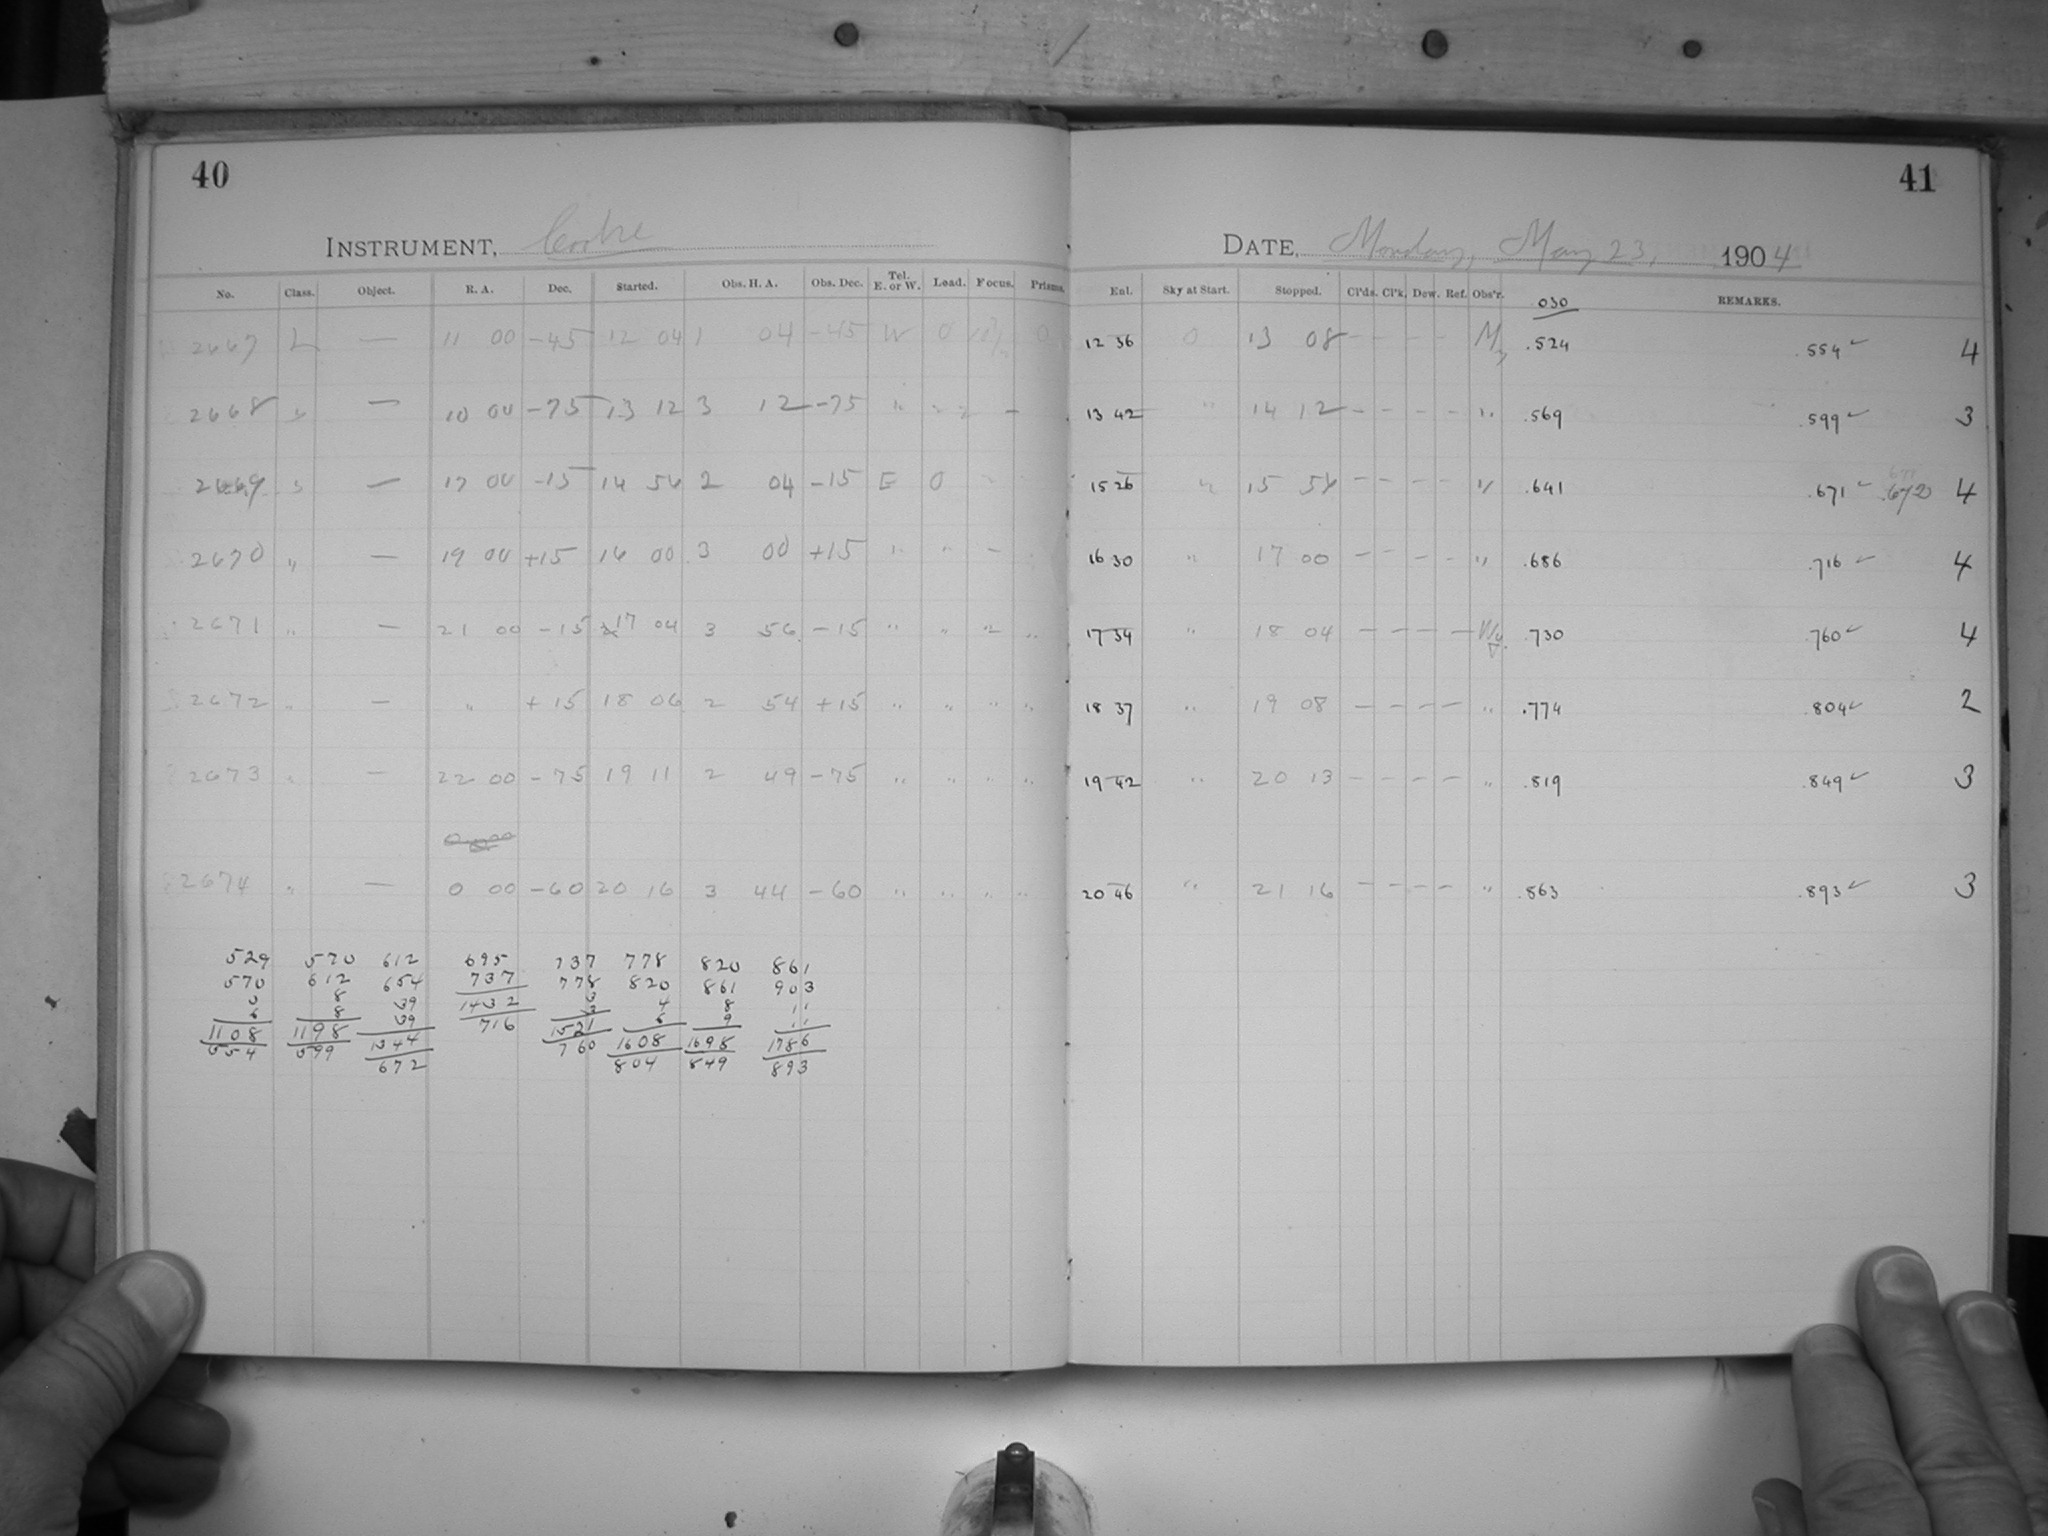 40
INSTRUMENT, Cooke
No. Class. Object. R. A. Dec. Started. Obs. H. A. Obs. Dec. Tel. E. or W. Load. Focus. Prisms.
2667 L — 11 00 -45 12 04 1 04 -45 W 0 0
2668 " — 10 00 -75 13 12 3 12 -75 " " " –
2669 " — 17 00 -15 14 56 2 04 -15 E 0 –
2670 " — 19 00 +15 16 00 3 00 +15 " " –
2671 " — 21 00 -15 17 04 3 56 -15 " " " "
2672 " — " +15 18 06 2 54 +15 " " " "
2673 " — 22 00 -75 19 11 2 49 -75 " " " "
2674 " — 0 00 -60 20 16 3 44 -60 " " " "
529 570 612 695 737 778 820 861
570 612 654 737 778 820 861 903
3 8 39 1432 3 4 8 11
6 8 39 716 3 6 9 11
1108 1198 1344 1521 1608 1698 1786
554 599 672 760 804 849 893
41
DATE, Monday, May 23, 1904
Enl. Sky at Start. Stopped. Cl'ds. Cl'k. Dew. Ref. Obs'r. .030 REMARKS.
12 36 0 13 08 – – – – My .524 .554 ✓ 4
13 42 " 14 12 – – – – " .569 .599 ✓ 3
15 26 " 15 56 – – – – " .641 .671 ✓ .672 4
16 30 " 17 00 – – – – " .686 .716 ✓ 4
17 34 " 18 04 – – – – Wy. .730 .760 ✓ 4
18 37 " 19 08 – – – – " .774 .804 ✓ 2
19 42 " 20 13 – – – – " .819 .849 ✓ 3
20 46 " 21 16 – – – – " .863 .893 ✓ 3